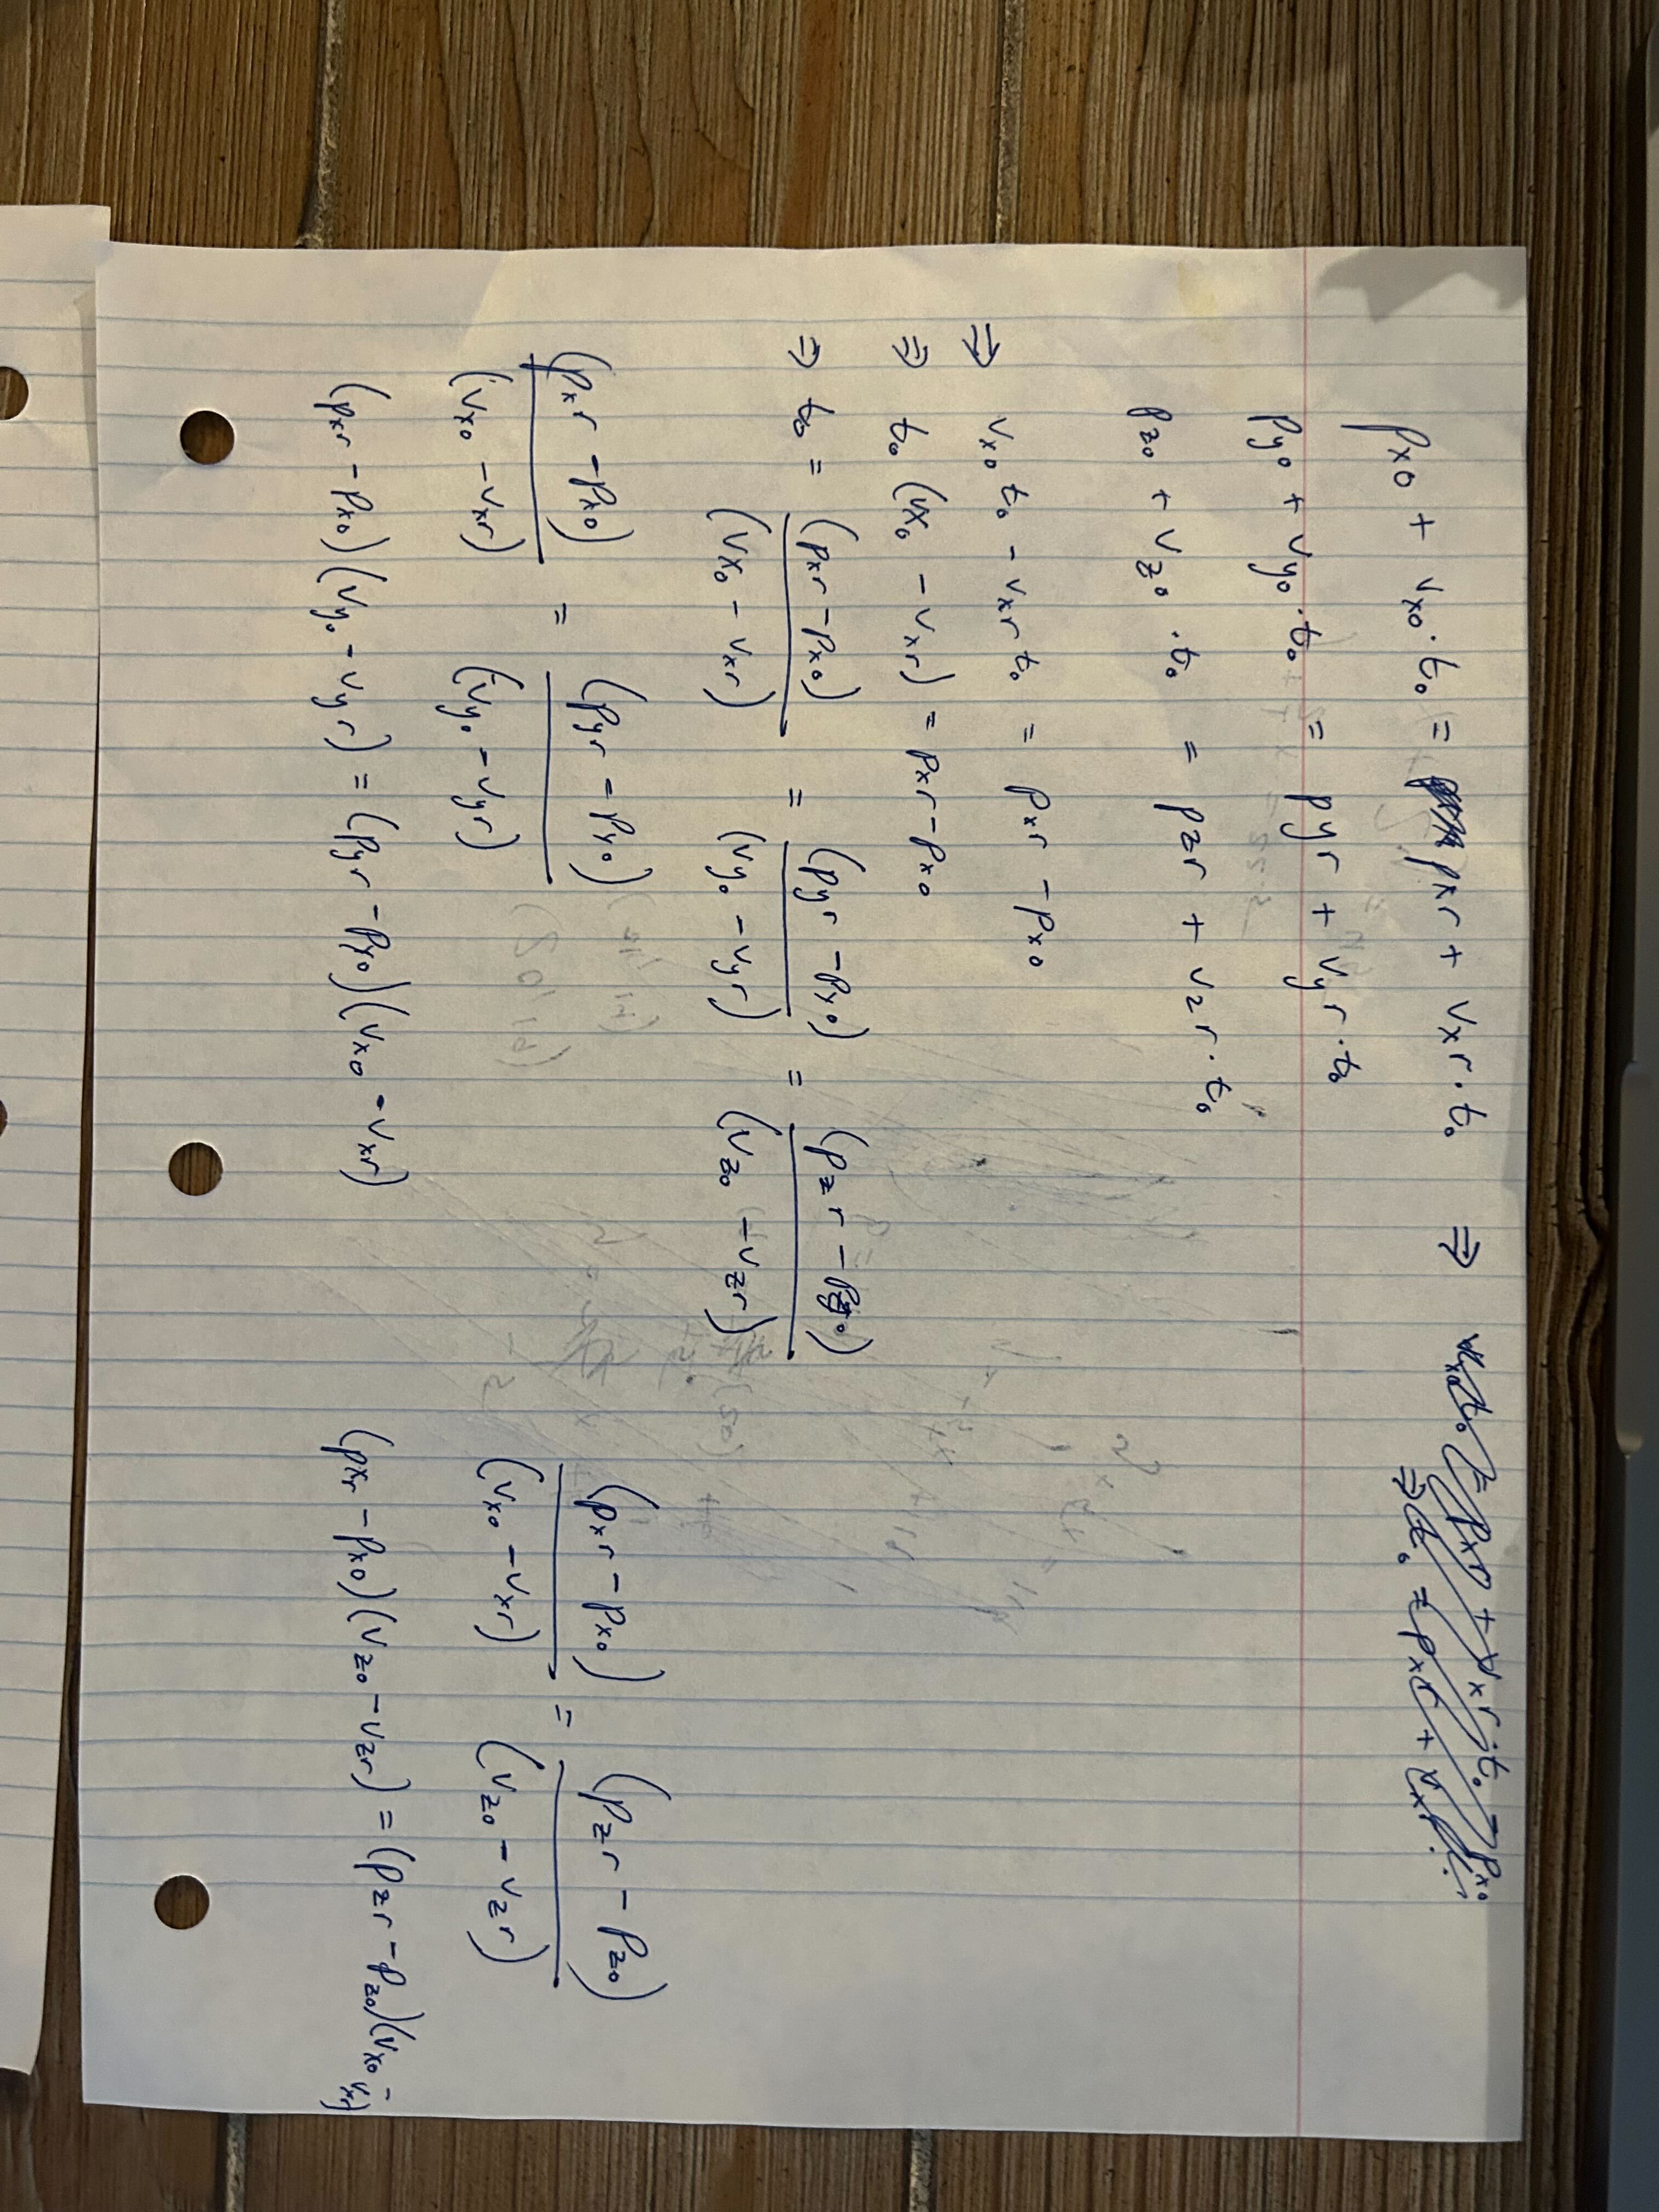 px0 + vx0 · t0 = pxr + vxr · t0 ⇒
py0 + vy0 · t0 = pyr + vyr · t0
pz0 + vz0 · t0 = pzr + vzr · t0
⇒ vx0 t0 - vxr t0 = pxr - px0
⇒ t0 (vx0 - vxr) = pxr - px0
⇒ t0 = (pxr - px0) / (vx0 - vxr) = (pyr - py0) / (vy0 - vyr) = (pzr - pz0) / (vz0 - vzr)
(pxr - px0) / (vx0 - vxr) = (pyr - py0) / (vy0 - vyr)
(pxr - px0)(vy0 - vyr) = (pyr - py0)(vx0 - vxr)
(pxr - px0) / (vx0 - vxr) = (pzr - pz0) / (vz0 - vzr)
(pxr - px0)(vz0 - vzr) = (pzr - pz0)(vx0 - vxr)